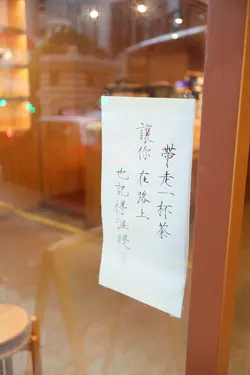 帶走一杯茶
讓你在路上
也記得溫暖